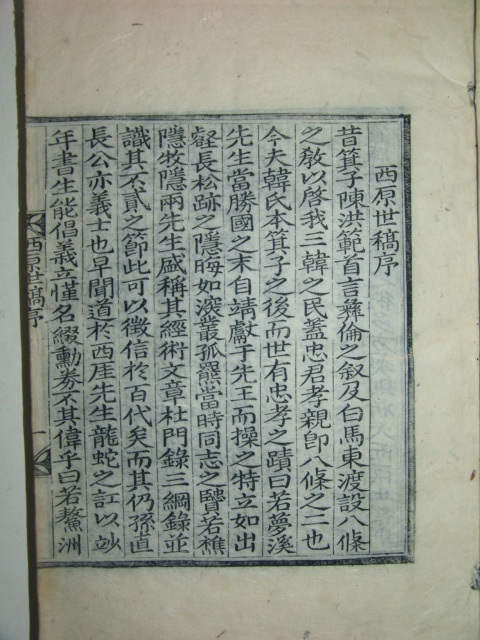 西原世稿序
昔箕子陳洪範首言彝倫之敘及白馬東渡設八條
之敎以啓我三韓之民蓋忠君孝親卽八條之二也
今夫韓氏本箕子之後而世有忠孝之蹟曰若夢溪
先生當勝國之末自靖獻于先王而操之特立如出
壑長松跡之隱晦如深叢孤羆當時同志之賢若樵
隱牧隱兩先生盛稱其經術文章杜門錄三綱錄並
識其不貳之節此可以徵信於百代矣而其仍孫直
長公亦義士也早聞道於西厓先生龍蛇之訌以妙
年書生能倡義立慬名綴勳券不其偉乎曰若鰲洲
西原世稿序
一